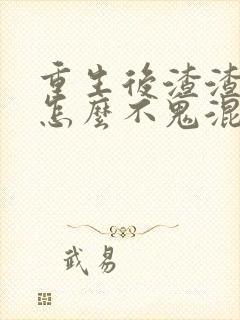 重生後渣渣
怎麼不鬼混
武易